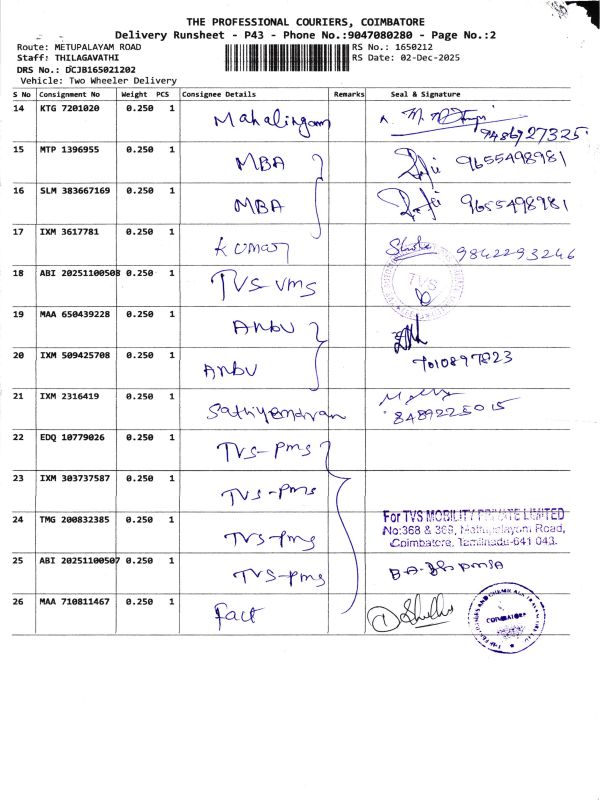 THE PROFESSIONAL COURIERS, COIMBATORE
Delivery Runsheet - P43 - Phone No.:9047080280 - Page No.:2
Route: METUPALAYAM ROAD RS No.: 1650212
Staff: THILAGAVATHI RS Date: 02-Dec-2025
DRS No.: DCJB165021202
Vehicle: Two Wheeler Delivery
S No Consignment No Weight PCS Consignee Details Remarks Seal & Signature
14 KTG 7201020 0.250 1 Mahalingam
9486927325
15 MTP 1396955 0.250 1 MBA 9655498981
16 SLM 383667169 0.250 1 MBA 9655498981
17 IXM 3617781 0.250 1 Kumar 9842293246
18 ABI 20251100508 0.250 1 TVS-VMS TVS
19 MAA 650439228 0.250 1 Anbu
20 IXM 509425708 0.250 1 Anbu 7010897823
21 IXM 2316419 0.250 1 Sathiyendran 8489225015
22 EDQ 10779026 0.250 1 TVS-PMS
23 IXM 303737587 0.250 1 TVS-PMS
24 TMG 200832385 0.250 1 TVS-PMS
For TVS MOBILITY PRIVATE LIMITED
No:368 & 369, Mettupalayam Road,
Coimbatore, Tamilnadu-641 043.
25 ABI 20251100507 0.250 1 TVS-PMS
26 MAA 710811467 0.250 1 Fact COIMBATORE